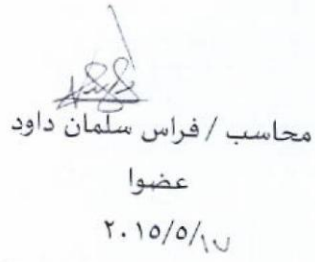 محاسب / فراس سلمان داود
عضوا
٢٠١٥/٥/١٧